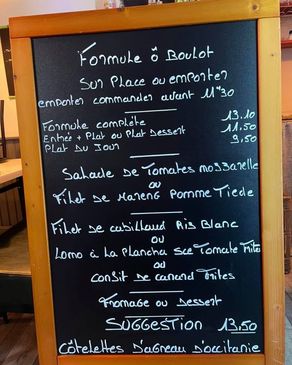 Formule ô Boulot
Sur Place ou emporter
emporter commander avant 11H30
Formule complète 13,10
Entrée + Plat ou Plat Dessert 11,50
Plat Du Jour 9,50
Salade de Tomates mozzarelle
ou
Filet de Hareng Pomme Tiede
Filet de cabillaud Ris Blanc
ou
Lomo à la Plancha sce Tomate frite
ou
Confit de canard Frites
Fromage ou Dessert
SUGGESTION 13,50
Côtelettes D'agneau D'occitanie